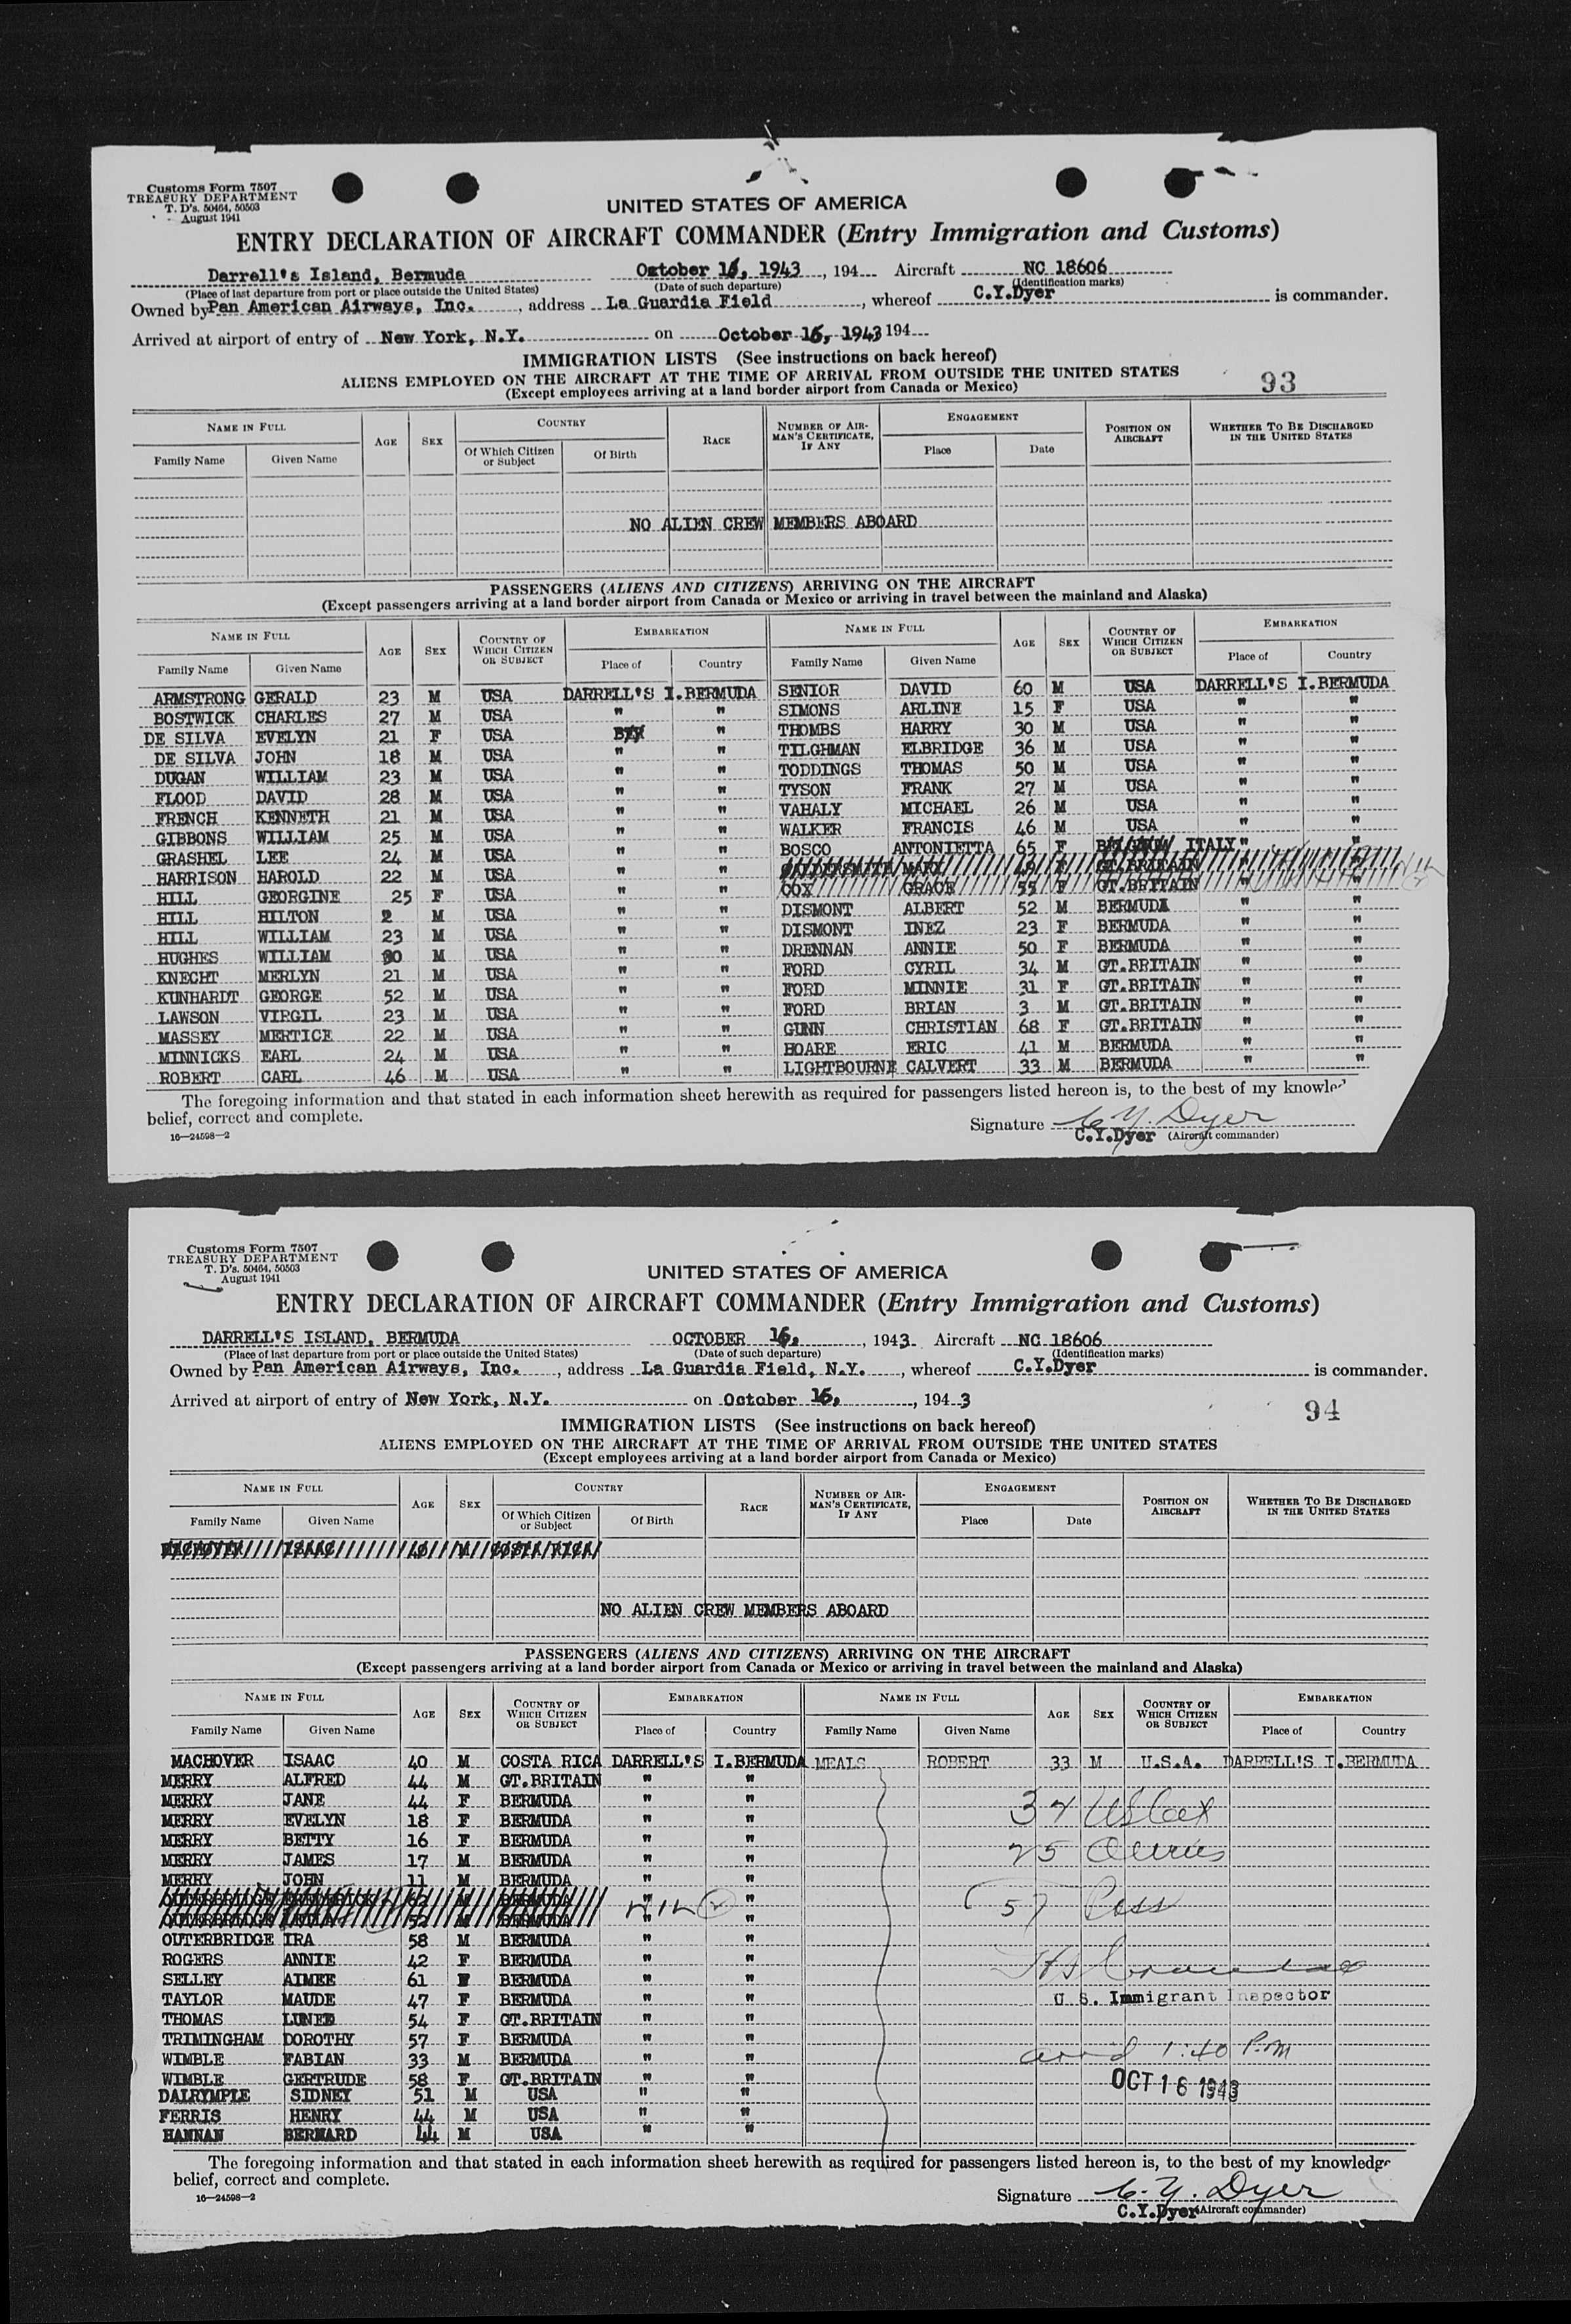 Customs Form 7507
TREASURY DEPARTMENT
T. D's. 50464, 50503
August 1941
UNITED STATES OF AMERICA
ENTRY DECLARATION OF AIRCRAFT COMMANDER (Entry Immigration and Customs)
Darrell's Island, Bermuda October 16, 1943, 194 Aircraft NC 18606
(Place of last departure from port or place outside the United States) (Date of such departure) (Identification marks)
Owned by Pan American Airways, Inc., address La Guardia Field, whereof C.Y.Dyer is commander.
Arrived at airport of entry of New York, N.Y. on October 16, 1943 194
IMMIGRATION LISTS (See instructions on back hereof)
ALIENS EMPLOYED ON THE AIRCRAFT AT THE TIME OF ARRIVAL FROM OUTSIDE THE UNITED STATES
(Except employees arriving at a land border airport from Canada or Mexico)
93
NAME IN FULL AGE SEX COUNTRY RACE NUMBER OF AIRMAN'S CERTIFICATE, IF ANY ENGAGEMENT POSITION ON AIRCRAFT WHETHER TO BE DISCHARGED IN THE UNITED STATES
Family Name Given Name Of Which Citizen or Subject Of Birth Place Date
NO ALIEN CREW MEMBERS ABOARD
PASSENGERS (ALIENS AND CITIZENS) ARRIVING ON THE AIRCRAFT
(Except passengers arriving at a land border airport from Canada or Mexico or arriving in travel between the mainland and Alaska)
NAME IN FULL AGE SEX COUNTRY OF WHICH CITIZEN OR SUBJECT EMBARKATION NAME IN FULL AGE SEX COUNTRY OF WHICH CITIZEN OR SUBJECT EMBARKATION
Family Name Given Name Place of Country Family Name Given Name Place of Country
ARMSTRONG GERALD 23 M USA DARRELL'S I. BERMUDA SENIOR DAVID 60 M USA DARRELL'S I. BERMUDA
BOSTWICK CHARLES 27 M USA " " SIMONS ARLINE 15 F USA " "
DE SILVA EVELYN 21 F USA " THOMBS HARRY 30 M USA " "
DE SILVA JOHN 18 M USA " " TILGHMAN ELBRIDGE 36 M USA " "
DUGAN WILLIAM 23 M USA " " TODDINGS THOMAS 50 M USA " "
FLOOD DAVID 28 M USA " " TYSON FRANK 27 M USA " "
FRENCH KENNETH 21 M USA " " VAHALY MICHAEL 26 M USA " "
GIBBONS WILLIAM 25 M USA " " WALKER FRANCIS 46 M USA " "
GRASHEL LEE 24 M USA " " BOSCO ANTONIETTA 65 F ITALY " "
HARRISON HAROLD 22 M USA " " MARY 49 F GT.BRITAIN " "
HILL GEORGINE 25 F USA " " COX GRACE 55 F GT.BRITAIN " "
HILL HILTON 2 M USA " " DISMONT ALBERT 52 M BERMUDA " "
HILL WILLIAM 23 M USA " " DISMONT INEZ 23 F BERMUDA " "
HUGHES WILLIAM 30 M USA " " DRENNAN ANNIE 50 F BERMUDA " "
KNECHT MERLYN 21 M USA " " FORD CYRIL 34 M GT.BRITAIN " "
KUNHARDT GEORGE 52 M USA " " FORD MINNIE 31 F GT.BRITAIN " "
LAWSON VIRGIL 23 M USA " " FORD BRIAN 3 M GT.BRITAIN " "
MASSEY MERTICE 22 M USA " " GUNN CHRISTIAN 68 F GT.BRITAIN " "
MINNICKS EARL 24 M USA " " HOARE ERIC 41 M BERMUDA " "
ROBERT CARL 46 M USA " " LIGHTBOURNE CALVERT 33 M BERMUDA " "
The foregoing information and that stated in each information sheet herewith as required for passengers listed hereon is, to the best of my knowle
belief, correct and complete.
Signature C. Y. Dyer
C.Y.Dyer (Aircraft commander)
16—24598—2
Customs Form 7507
TREASURY DEPARTMENT
T. D's. 50464, 50503
August 1941
UNITED STATES OF AMERICA
ENTRY DECLARATION OF AIRCRAFT COMMANDER (Entry Immigration and Customs)
DARRELL'S ISLAND, BERMUDA OCTOBER 16, 1943 Aircraft NC 18606
(Place of last departure from port or place outside the United States) (Date of such departure) (Identification marks)
Owned by Pan American Airways, Inc., address La Guardia Field, N.Y., whereof C.Y.Dyer is commander.
Arrived at airport of entry of New York, N.Y. on October 16, 1943
94
IMMIGRATION LISTS (See instructions on back hereof)
ALIENS EMPLOYED ON THE AIRCRAFT AT THE TIME OF ARRIVAL FROM OUTSIDE THE UNITED STATES
(Except employees arriving at a land border airport from Canada or Mexico)
NAME IN FULL AGE SEX COUNTRY RACE NUMBER OF AIRMAN'S CERTIFICATE, IF ANY ENGAGEMENT POSITION ON AIRCRAFT WHETHER TO BE DISCHARGED IN THE UNITED STATES
Family Name Given Name Of Which Citizen or Subject Of Birth Place Date
MACHOVER ISAAC 40 M COSTA RICA
NO ALIEN CREW MEMBERS ABOARD
PASSENGERS (ALIENS AND CITIZENS) ARRIVING ON THE AIRCRAFT
(Except passengers arriving at a land border airport from Canada or Mexico or arriving in travel between the mainland and Alaska)
NAME IN FULL AGE SEX COUNTRY OF WHICH CITIZEN OR SUBJECT EMBARKATION NAME IN FULL AGE SEX COUNTRY OF WHICH CITIZEN OR SUBJECT EMBARKATION
Family Name Given Name Place of Country Family Name Given Name Place of Country
MACHOVER ISAAC 40 M COSTA RICA DARRELL'S I. BERMUDA MEALS ROBERT 33 M U.S.A. DARRELL'S I. BERMUDA
MERRY ALFRED 44 M GT.BRITAIN " "
MERRY JANE 44 F BERMUDA " "
MERRY EVELYN 18 F BERMUDA " "
MERRY BETTY 16 F BERMUDA " "
MERRY JAMES 17 M BERMUDA " "
MERRY JOHN 11 M BERMUDA " "
OUTERBRIDGE BERMUDA " "
OUTERBRIDGE 52 M BERMUDA " "
OUTERBRIDGE IRA 58 M BERMUDA " "
ROGERS ANNIE 42 F BERMUDA " "
SELLEY AIMEE 61 F BERMUDA " "
TAYLOR MAUDE 47 F BERMUDA " " U.S. Immigrant Inspector
THOMAS LUNED 54 F GT.BRITAIN " "
TRIMINGHAM DOROTHY 57 F BERMUDA " "
WIMBLE FABIAN 33 M BERMUDA " " 1:40 P.M
WIMBLE GERTRUDE 58 F GT.BRITAIN " " OCT 16 1943
DALRYMPLE SIDNEY 51 M USA " "
FERRIS HENRY 44 M USA " "
HANNAN BERNARD 44 M USA " "
The foregoing information and that stated in each information sheet herewith as required for passengers listed hereon is, to the best of my knowledge
belief, correct and complete.
Signature C. Y. Dyer
C.Y.Dyer (Aircraft commander)
16—24598—2